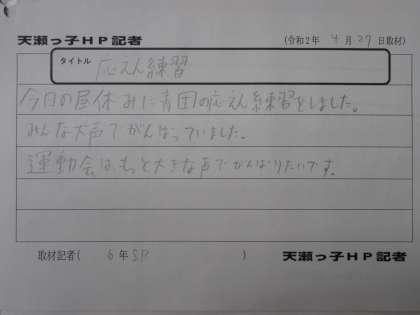 天瀬っ子HP記者
(令和2年 4月27日取材)
タイトル 応えん練習
今日の昼休みに青団の応えん練習をしました。
みんな大声でがんばっていました。
運動会は、もっと大きな声でがんばりたいです。
取材記者( 6年SR )
天瀬っ子HP記者